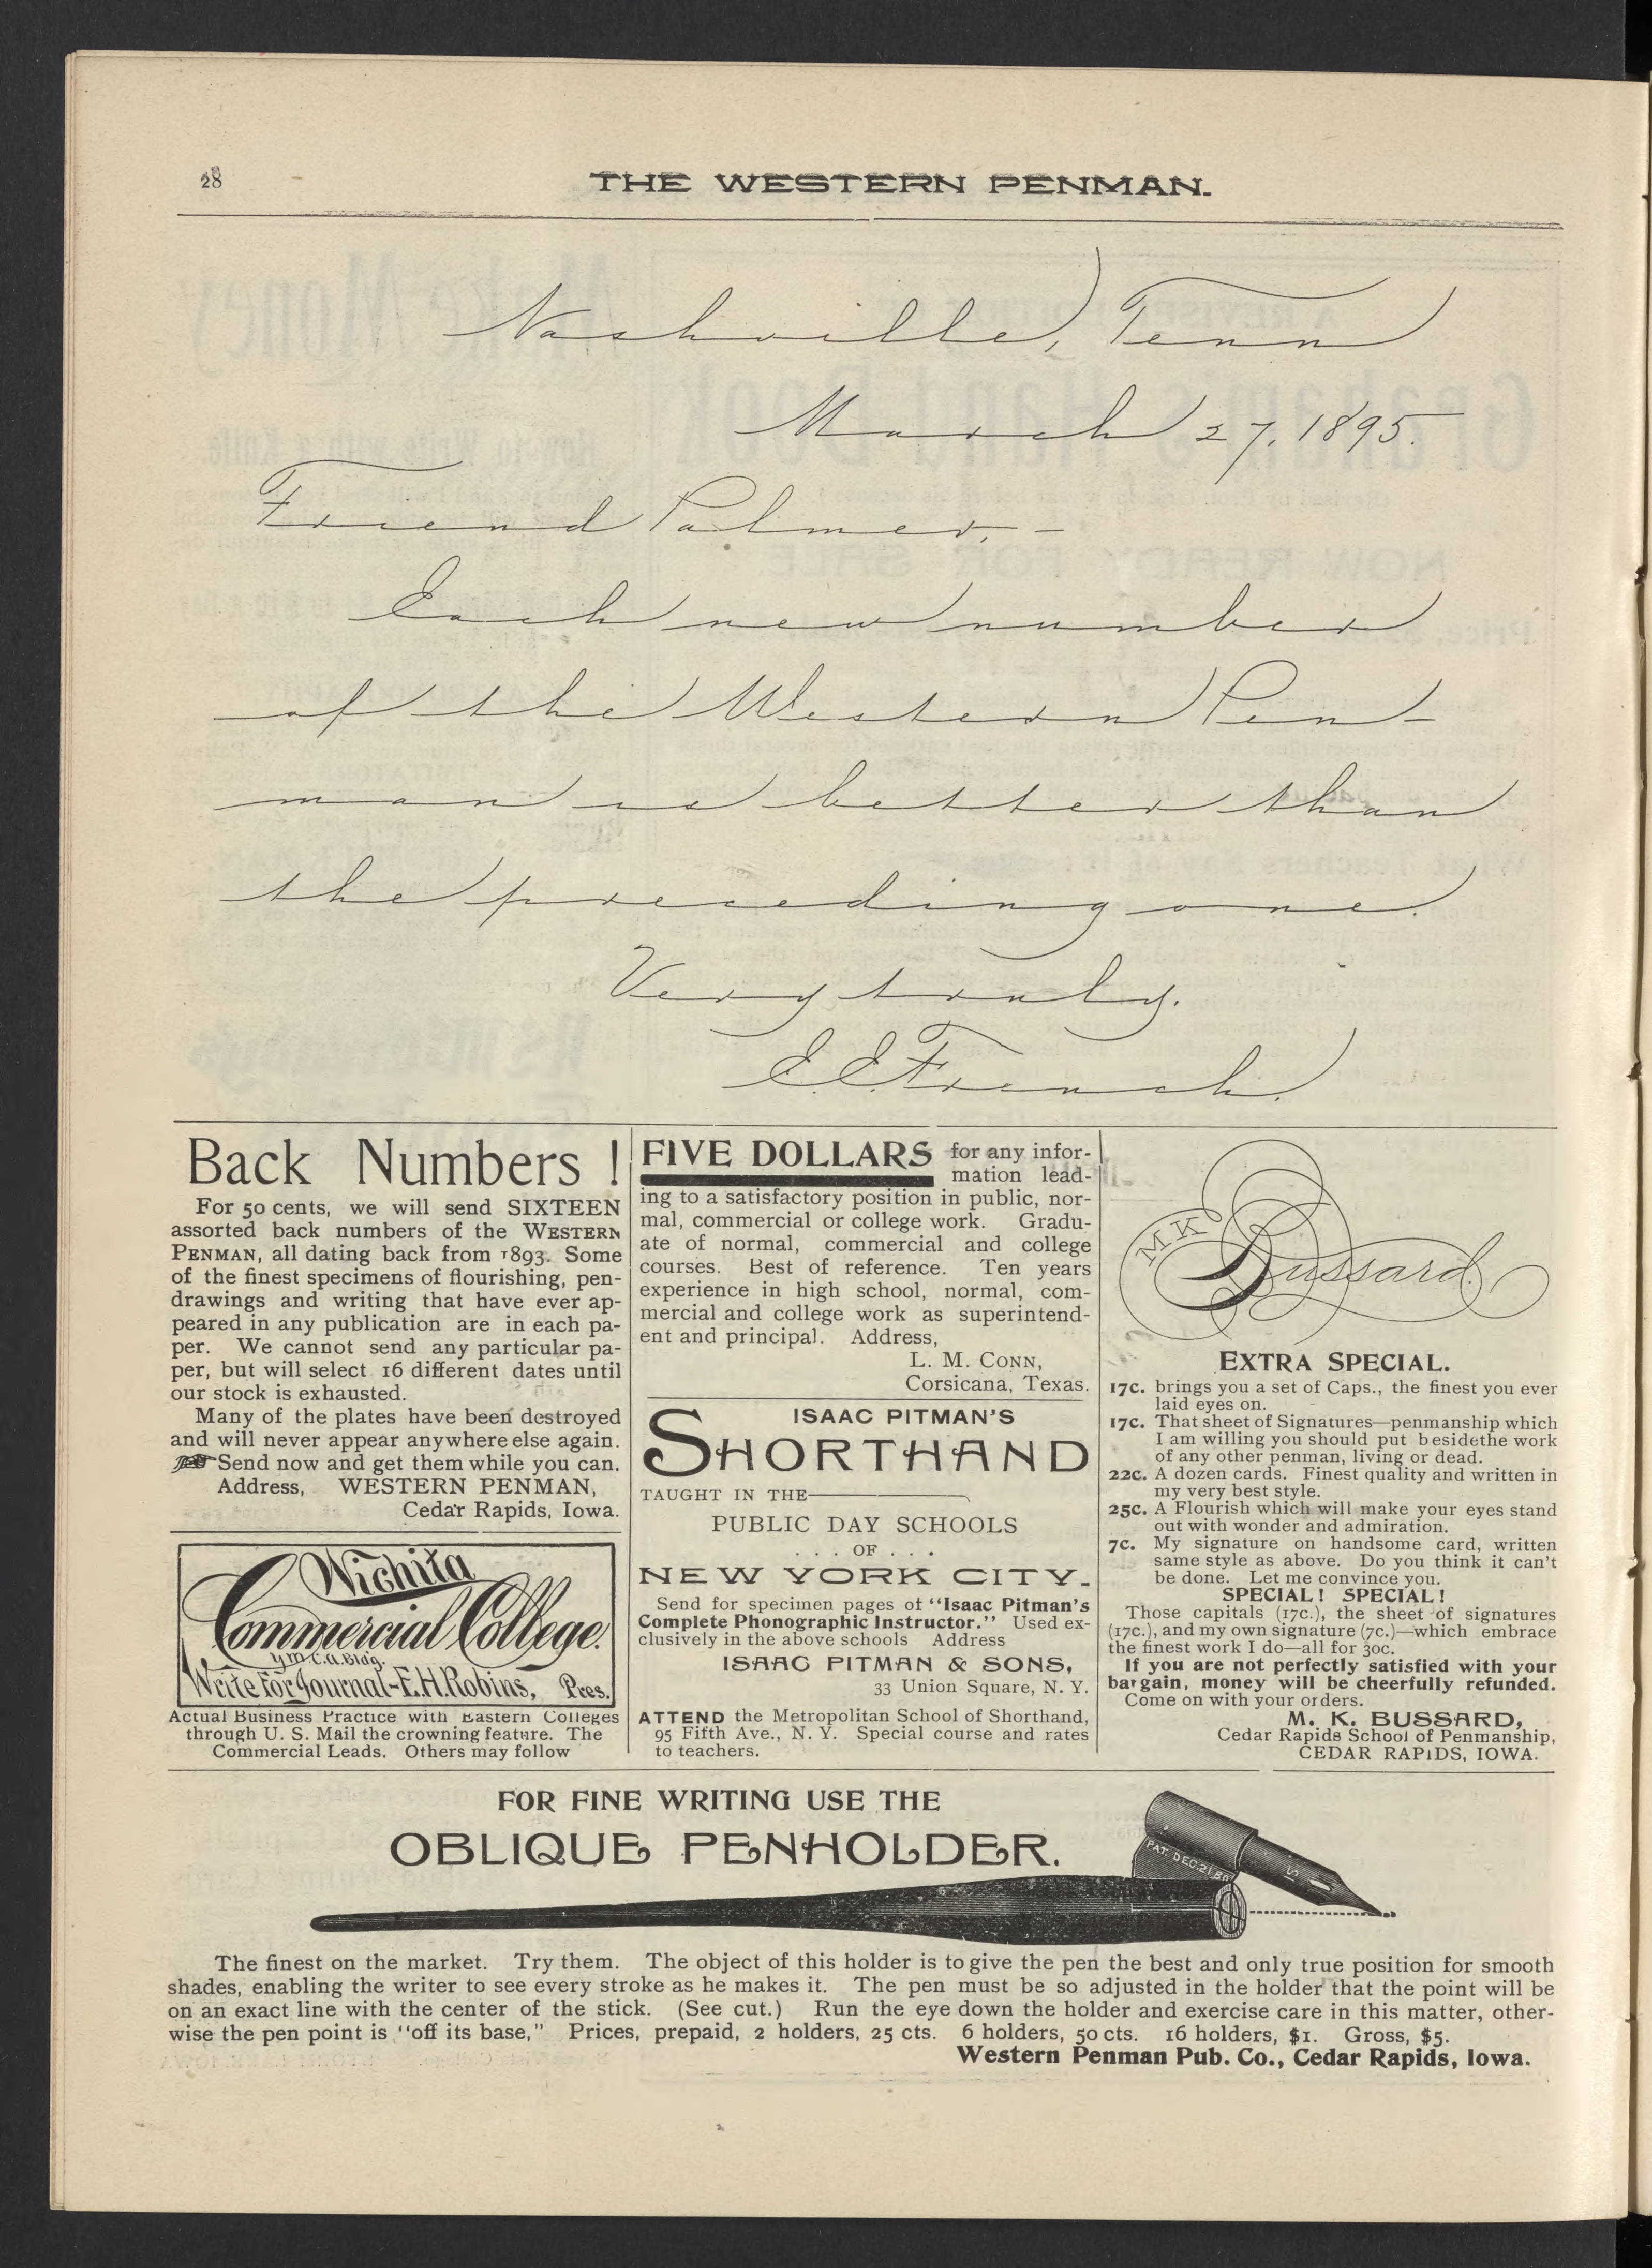 28
THE WESTERN PENMAN.
Nashville, Tenn
March 27, 1895.
Friend Palmer, -
Each new number
of the Western Pen-
man is better than
the preceding one.
Very truly.
E. E. French.
Back Numbers !
For 50 cents, we will send SIXTEEN
assorted back numbers of the WESTERN
PENMAN, all dating back from 1893. Some
of the finest specimens of flourishing, pen-
drawings and writing that have ever ap-
peared in any publication are in each pa-
per. We cannot send any particular pa-
per, but will select 16 different dates until
our stock is exhausted.
Many of the plates have been destroyed
and will never appear anywhere else again.
Send now and get them while you can.
Address, WESTERN PENMAN,
Cedar Rapids, Iowa.
Wichita
Commercial College.
Y.M.C.A. Bldg.
Write for Journal-E.H.Robins, Pres.
Actual Business Practice with Eastern Colleges
through U. S. Mail the crowning feature. The
Commercial Leads. Others may follow
FIVE DOLLARS for any infor-
mation lead-
ing to a satisfactory position in public, nor-
mal, commercial or college work. Gradu-
ate of normal, commercial and college
courses. Best of reference. Ten years
experience in high school, normal, com-
mercial and college work as superintend-
ent and principal. Address,
L. M. CONN,
Corsicana, Texas.
ISAAC PITMAN'S
SHORTHAND
TAUGHT IN THE
PUBLIC DAY SCHOOLS
. . . OF . . .
NEW YORK CITY.
Send for specimen pages of "Isaac Pitman's
Complete Phonographic Instructor." Used ex-
clusively in the above schools Address
ISAAC PITMAN & SONS,
33 Union Square, N. Y.
ATTEND the Metropolitan School of Shorthand,
95 Fifth Ave., N. Y. Special course and rates
to teachers.
M K Bussard.
EXTRA SPECIAL.
17c. brings you a set of Caps., the finest you ever
laid eyes on.
17c. That sheet of Signatures—penmanship which
I am willing you should put besidethe work
of any other penman, living or dead.
22c. A dozen cards. Finest quality and written in
my very best style.
25c. A Flourish which will make your eyes stand
out with wonder and admiration.
7c. My signature on handsome card, written
same style as above. Do you think it can't
be done. Let me convince you.
SPECIAL! SPECIAL!
Those capitals (17c.), the sheet of signatures
(17c.), and my own signature (7c.)—which embrace
the finest work I do—all for 30c.
If you are not perfectly satisfied with your
bargain, money will be cheerfully refunded.
Come on with your orders.
M. K. BUSSARD,
Cedar Rapids School of Penmanship,
CEDAR RAPIDS, IOWA.
FOR FINE WRITING USE THE
OBLIQUE PENHOLDER.
PAT. DEC. 21.80
The finest on the market. Try them. The object of this holder is to give the pen the best and only true position for smooth
shades, enabling the writer to see every stroke as he makes it. The pen must be so adjusted in the holder that the point will be
on an exact line with the center of the stick. (See cut.) Run the eye down the holder and exercise care in this matter, other-
wise the pen point is "off its base," Prices, prepaid, 2 holders, 25 cts. 6 holders, 50 cts. 16 holders, $1. Gross, $5.
Western Penman Pub. Co., Cedar Rapids, Iowa.